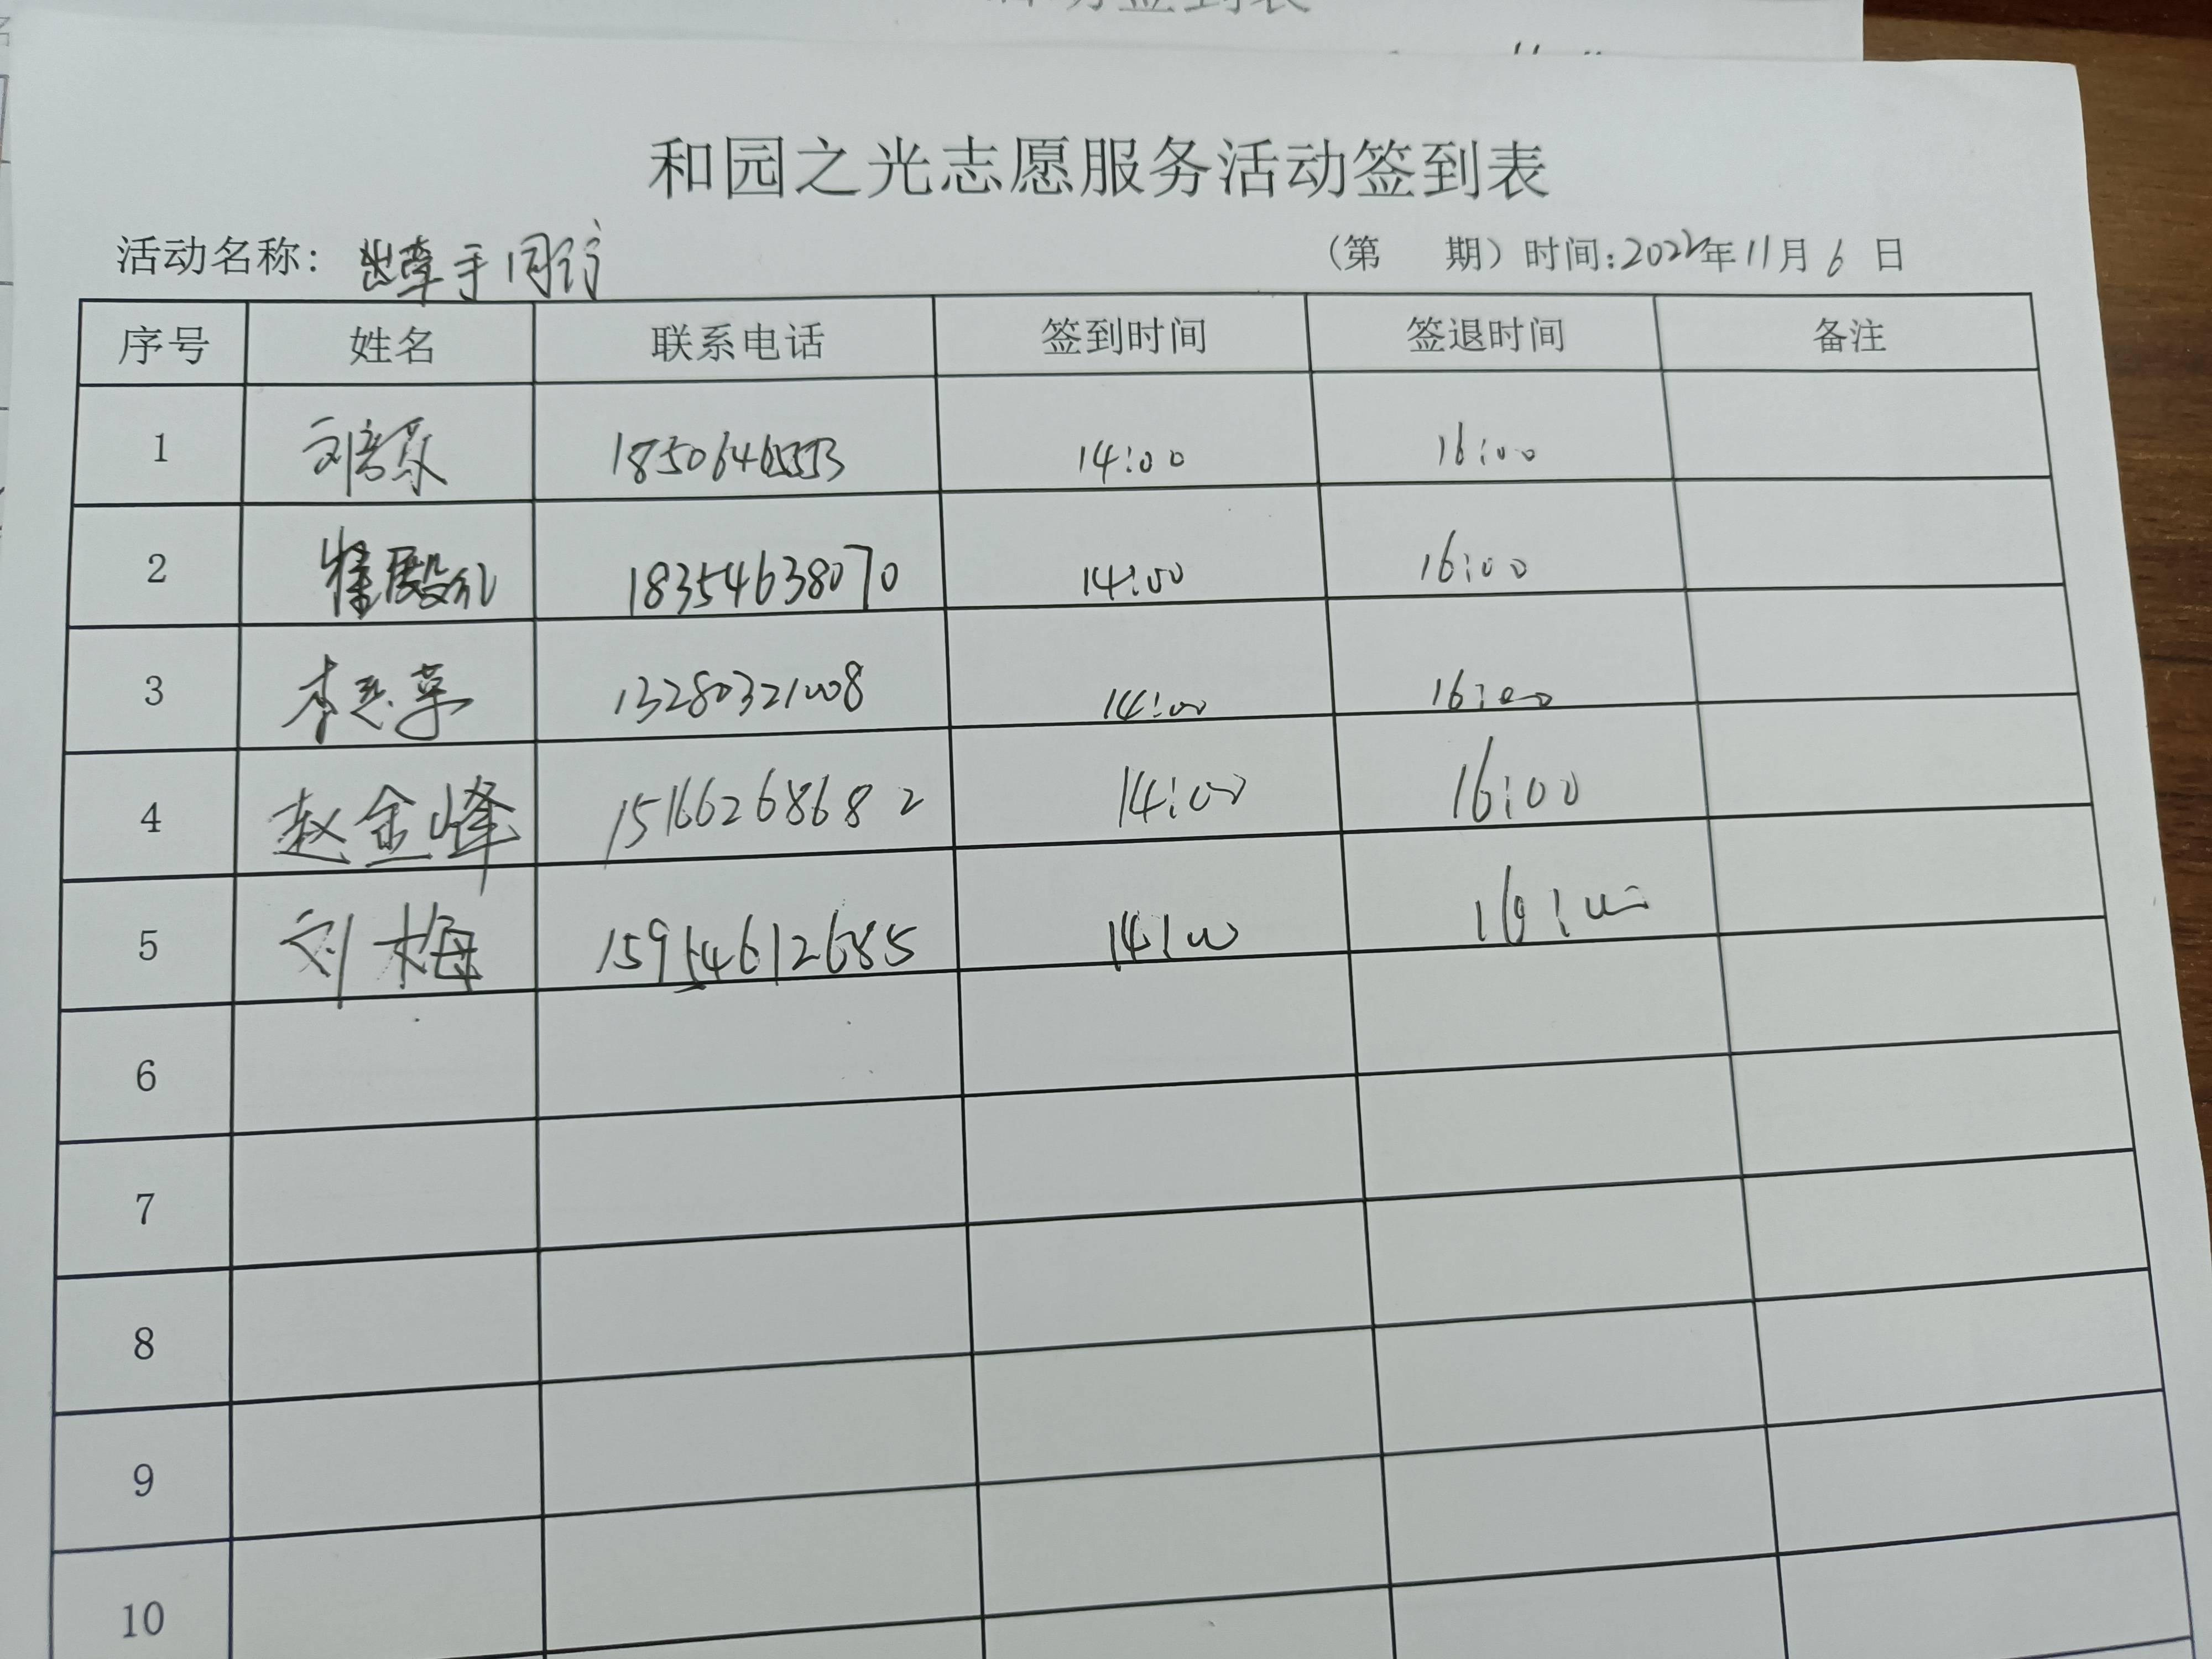 活动签到表
和园之光志愿服务活动签到表
活动名称： 牵手同行 （第 期）时间：2022年11月6日
序号 姓名 联系电话 签到时间 签退时间 备注
1 14:00 16:00
2 18354638070 14:00 16:00
3 13280321008 14:00 16:00
4 赵金峰 15166268682 14:00 16:00
5 刘梅 15954612685 14:00 16:00
6
7
8
9
10